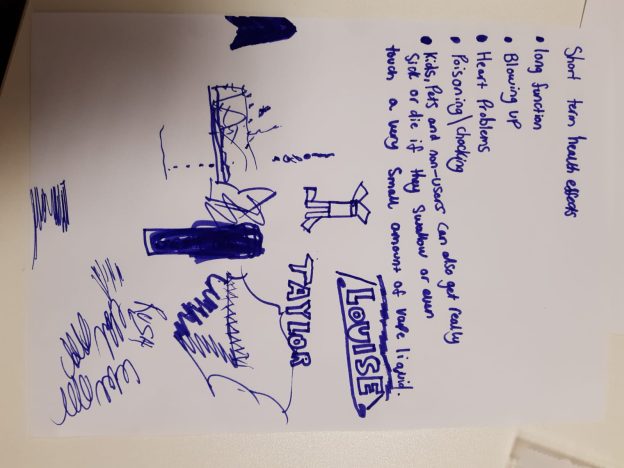 Short term health effects
• long function
• Blowing up
• Heart Problems
• Poisoning/chocking
• Kids, Pets and non-users can also get really
sick or die if they swallow or even
touch a very small amount of vape liquid.
LOUISE
TAYLOR